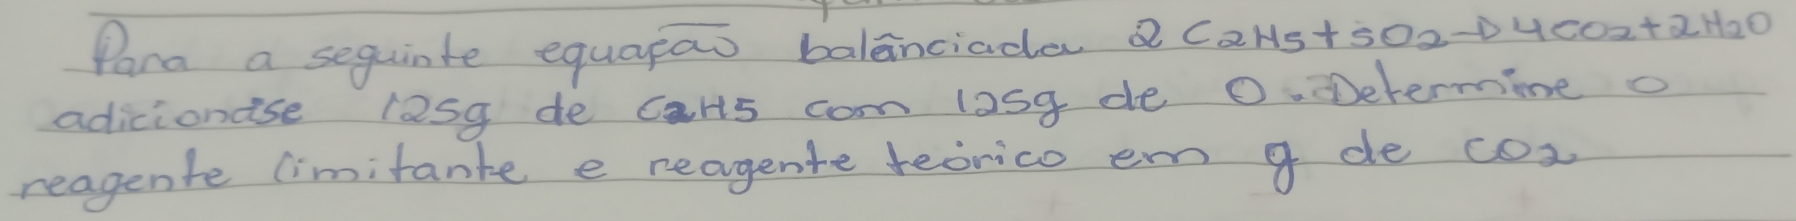 Para a seguinte equação balânciada 2 C2H5+5O2→4CO2+2H2O
adicionase 125g de C2H5 com 125g de O. Determine o
reagente limitante e reagente teórico em g de CO2